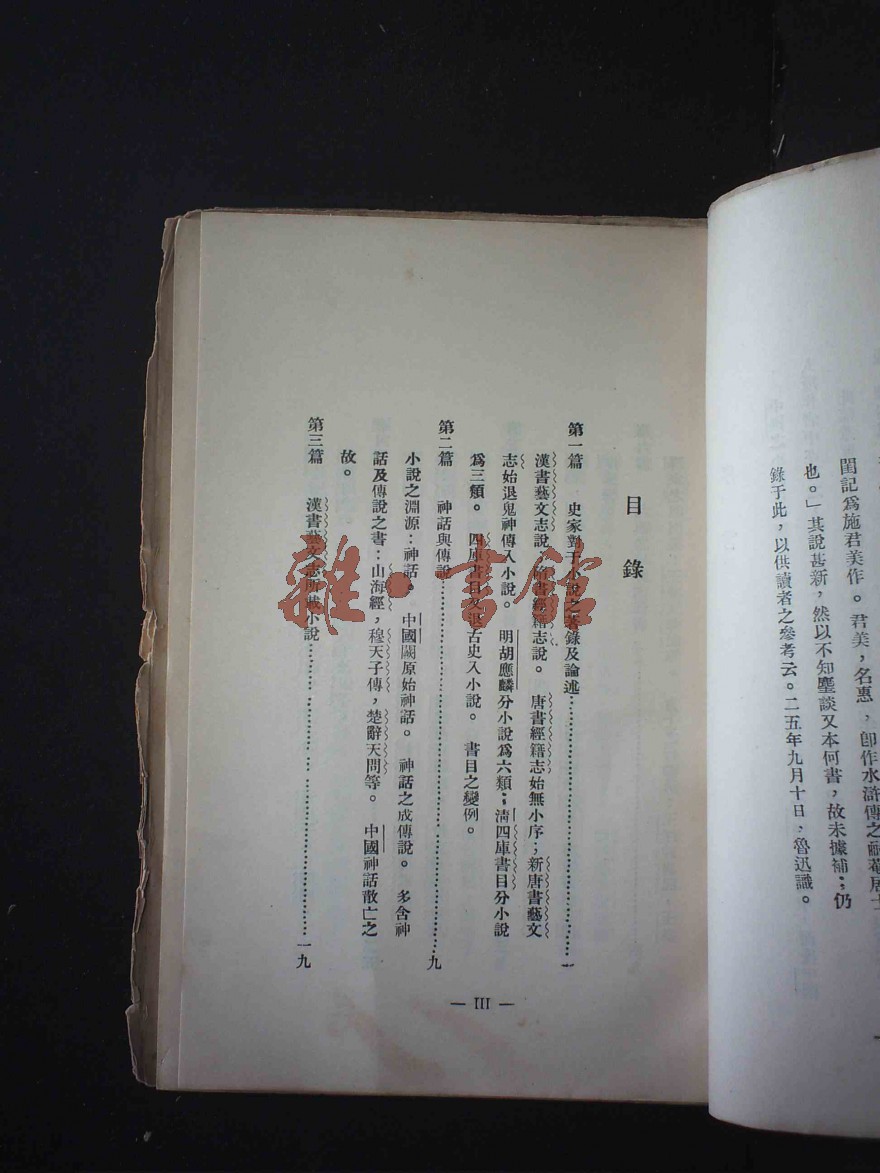 閨記爲施君美作。君美，名惠，卽作水滸傳之耐菴居士
也。」其說甚新，然以不知鏖談又本何書，故未據補；仍
錄于此，以供讀者之參考云。二五年九月十日，魯迅識。
目錄
第一篇 史家對于小說之著錄及論述……一
漢書藝文志說。隋書經籍志說。唐書經籍志始無小序；新唐書藝文
志始退鬼神傳入小說。明胡應麟分小說爲六類；清四庫書目分小說
爲三類。四庫書目又退古史入小說。書目之變例。
第二篇 神話與傳說……九
小說之淵源：神話。中國闕原始神話。神話之成傳說。多含神
話及傳說之書：山海經，穆天子傳，楚辭天問等。中國神話散亡之
故。
第三篇 漢書藝文志所載小說……一九
— III —
雜·書館